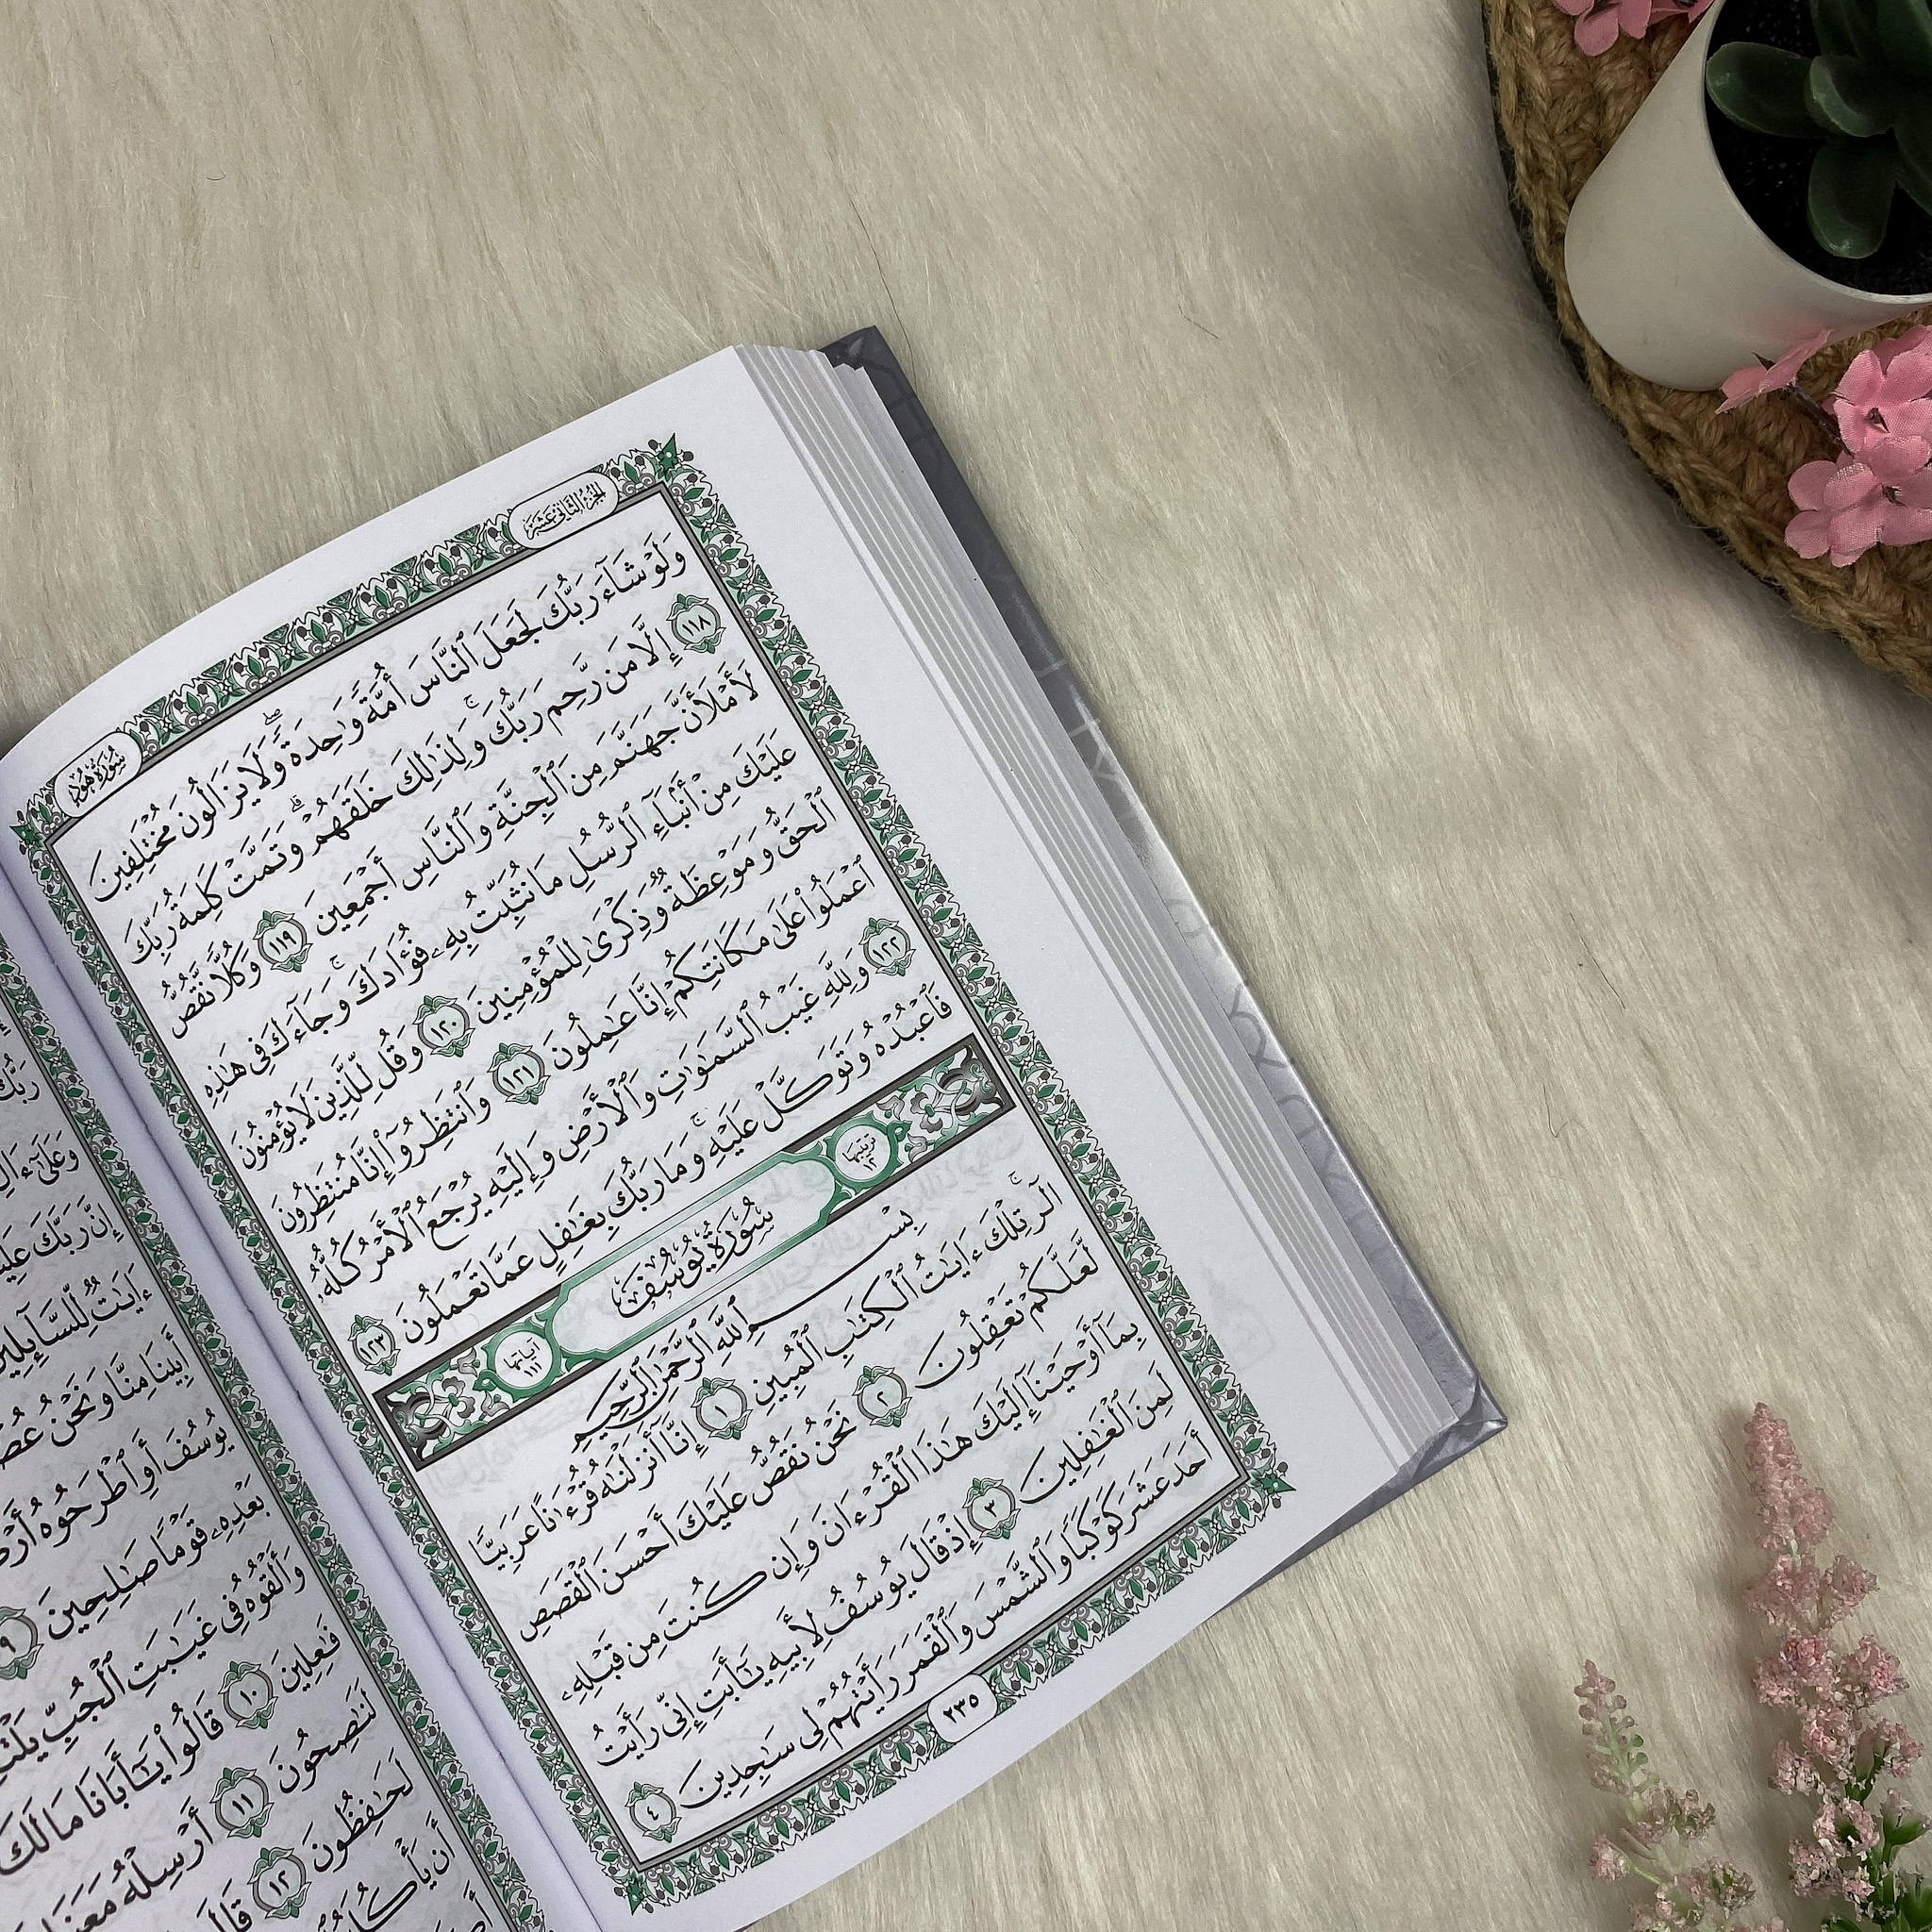 الجزء الثاني عشر
سورة هود
وَلَوْ شَآءَ رَبُّكَ لَجَعَلَ ٱلنَّاسَ أُمَّةً وَٰحِدَةً ۖ وَلَا يَزَالُونَ مُخْتَلِفِينَ
١١٨ إِلَّا مَن رَّحِمَ رَبُّكَ ۚ وَلِذَٰلِكَ خَلَقَهُمْ ۗ وَتَمَّتْ كَلِمَةُ رَبِّكَ
لَأَمْلَأَنَّ جَهَنَّمَ مِنَ ٱلْجِنَّةِ وَٱلنَّاسِ أَجْمَعِينَ ١١٩ وَكُلًّا نَّقُصُّ
عَلَيْكَ مِنْ أَنۢبَآءِ ٱلرُّسُلِ مَا نُثَبِّتُ بِهِۦ فُؤَادَكَ ۚ وَجَآءَكَ فِى هَٰذِهِ
ٱلْحَقُّ وَمَوْعِظَةٌ وَذِكْرَىٰ لِلْمُؤْمِنِينَ ١٢٠ وَقُل لِّلَّذِينَ لَا يُؤْمِنُونَ
ٱعْمَلُوا۟ عَلَىٰ مَكَانَتِكُمْ إِنَّا عَٰمِلُونَ ١٢١ وَٱنتَظِرُوٓا۟ إِنَّا مُنتَظِرُونَ
١٢٢ وَلِلَّهِ غَيْبُ ٱلسَّمَٰوَٰتِ وَٱلْأَرْضِ وَإِلَيْهِ يُرْجَعُ ٱلْأَمْرُ كُلُّهُۥ
فَٱعْبُدْهُ وَتَوَكَّلْ عَلَيْهِ ۚ وَمَا رَبُّكَ بِغَٰفِلٍ عَمَّا تَعْمَلُونَ ١٢٣
ترتيبها ١٢
سورة يوسف
آياتها ١١١
بِسْمِ ٱللَّهِ ٱلرَّحْمَٰنِ ٱلرَّحِيمِ
الٓر ۚ تِلْكَ ءَايَٰتُ ٱلْكِتَٰبِ ٱلْمُبِينِ ١ إِنَّآ أَنزَلْنَٰهُ قُرْءَٰنًا عَرَبِيًّا
لَّعَلَّكُمْ تَعْقِلُونَ ٢ نَحْنُ نَقُصُّ عَلَيْكَ أَحْسَنَ ٱلْقَصَصِ
بِمَآ أَوْحَيْنَآ إِلَيْكَ هَٰذَا ٱلْقُرْءَانَ وَإِن كُنتَ مِن قَبْلِهِۦ
لَمِنَ ٱلْغَٰفِلِينَ ٣ إِذْ قَالَ يُوسُفُ لِأَبِيهِ يَٰٓأَبَتِ إِنِّى رَأَيْتُ
أَحَدَ عَشَرَ كَوْكَبًا وَٱلشَّمْسَ وَٱلْقَمَرَ رَأَيْتُهُمْ لِى سَٰجِدِينَ ٤
٢٣٥
رَبُّكَ
وَعَلَىٰٓ ءَالِ
إِنَّ رَبَّكَ
ءَايَٰتٌ لِّلسَّآئِلِينَ
أَبِينَا مِنَّا وَنَحْنُ
يُوسُفَ أَوِ ٱطْرَحُوهُ
بَعْدِهِۦ قَوْمًا صَٰلِحِينَ ٩
وَأَلْقُوهُ فِى غَيَٰبَتِ ٱلْجُبِّ
فَٰعِلِينَ ١٠ قَالُوا۟ يَٰٓأَبَانَا مَا لَكَ
لَنَٰصِحُونَ ١١ أَرْسِلْهُ مَعَنَا
لَحَٰفِظُونَ ١٢ قَالَ
أَن يَأْكُلَهُ